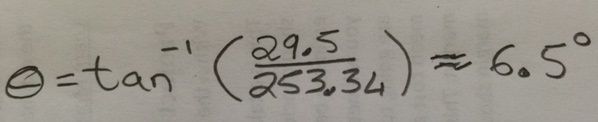 θ = tan⁻¹ (29.5/253.34) ≈ 6.5°